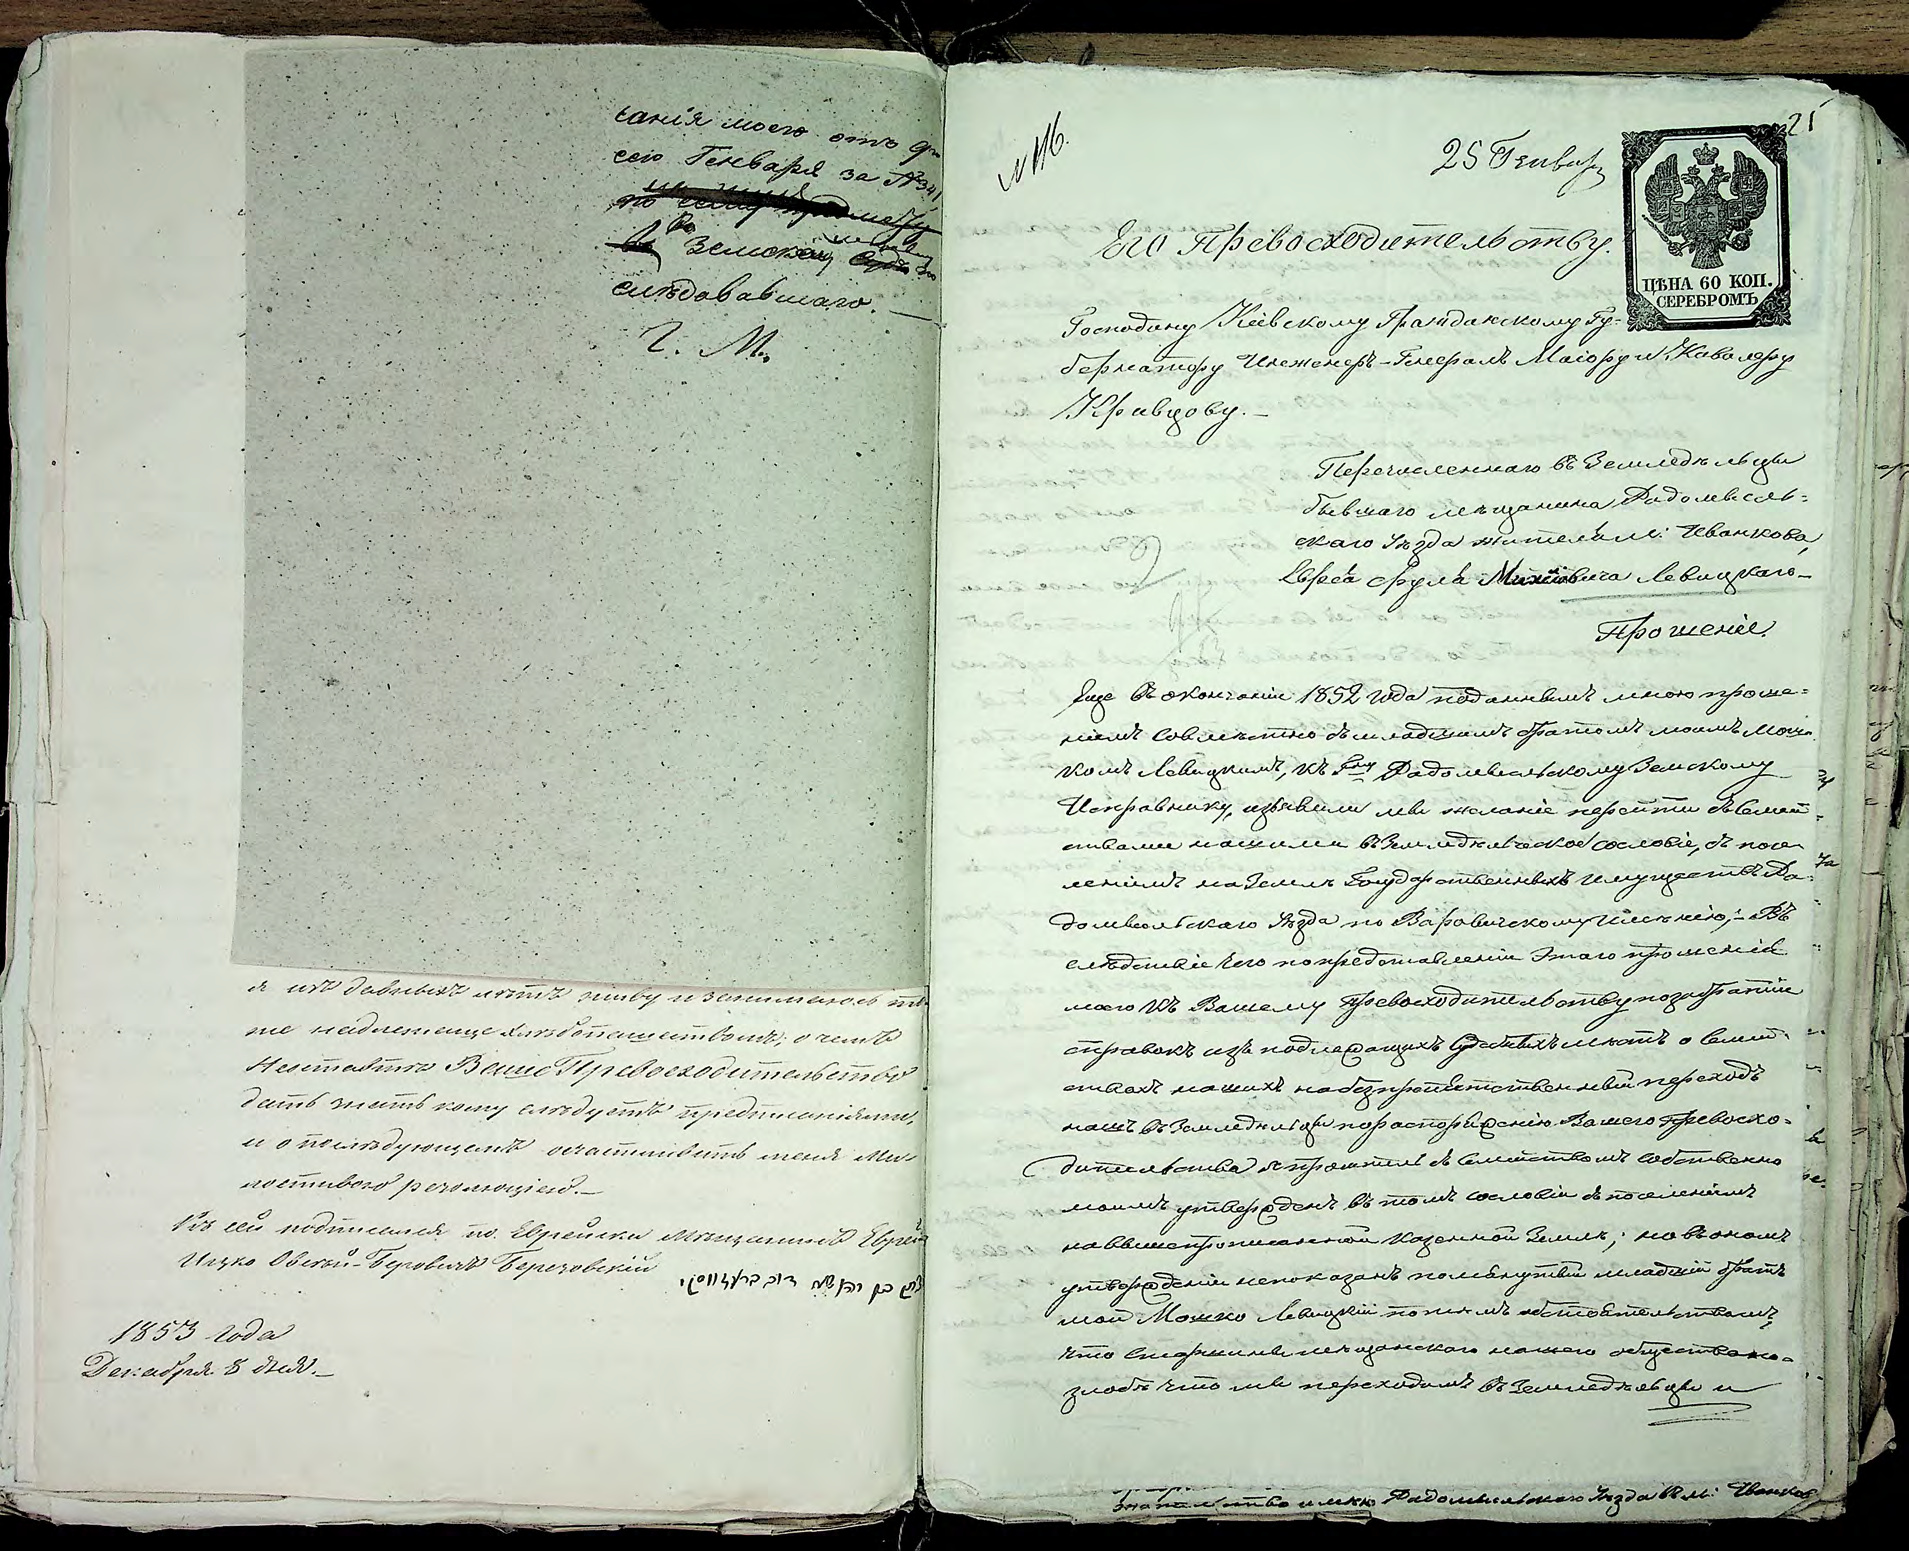 санія моего отъ
сего Генваря за №
Земскому
слѣдовавшаго.
Г. М.
я изъ давныхъ лѣтъ ниву и занимаюсь
же надлежаще хлебопашествомъ; о чемъ
Неоставьте Ваше Превосходительство
дать знать кому слѣдуетъ предписаніями,
и о послѣдующемъ осчастливить меня Ми-
лостивою резолюціею.—
Къ сей подписался по Еврейски Мѣщанинъ Еврей
Ицко Овсей-Беровичъ Березовскій
1853 года
Декабря 8 дня.—
21
25 Генваря
Его Превосходительству.
ЦѢНА 60 КОП.
СЕРЕБРОМЪ
Господину Кіевскому Гражданскому Гу-
бернатору Инженеръ-Генералъ Маіору и Кавалеру
Кривцову.—
Перечисленнаго въ Земледѣльцы
бывшаго мѣщанина Радомысль-
скаго Уѣзда жителя м: Иванкова,
Еврея Сруля Левицкаго—
Прошеніе.
Еще въ окончаніи 1852 года поданнымъ мною проше-
ніемъ совмѣстно съ младшимъ братомъ моимъ Мош-
комъ Левицкимъ, къ Гну Радомысльскому Земскому
Исправнику, изъявили мы желаніе перейти съ семей-
ствами нашими въ Земледѣльческое сословіе, съ посе-
леніемъ на Землѣ Государственныхъ Имуществъ Ра-
домысльскаго Уѣзда по Варовичскому имѣнію;— Въ
слѣдствіе чего по представленіи этаго прошенія
моего къ Вашему Превосходительству по забратіи
справокъ изъ подлежащихъ мѣстъ о семей-
ствахъ нашихъ на безпрепятственный переходъ
нашъ въ Земледѣльцы по распоряженію Вашего Превосхо-
дительства я проситель съ семействомъ собственно
моимъ утвержденъ въ томъ сословіи съ поселеніемъ
на вышеписанной казенной Землѣ; но въ ономъ
утвержденіи непоказанъ помянутый младшій братъ
мой Мошко Левицкій по тѣмъ обстоятельствамъ,
что старшины мѣщанскаго нашего общества по
злобѣ что мы переходимъ въ Земледѣльцы и
Радомысльскаго Уѣзда въ м: Иванков